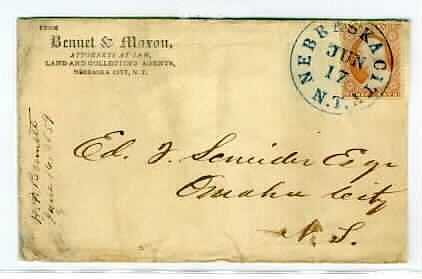 FROM
Bennet & Moxon,
ATTORNEYS AT LAW,
LAND AND COLLECTING AGENTS,
NEBRASKA CITY, N. T.
NEBRASKA CITY N.T.
JUN
17
Ed. F. Scnider Esqr
Omaha City
N. T.